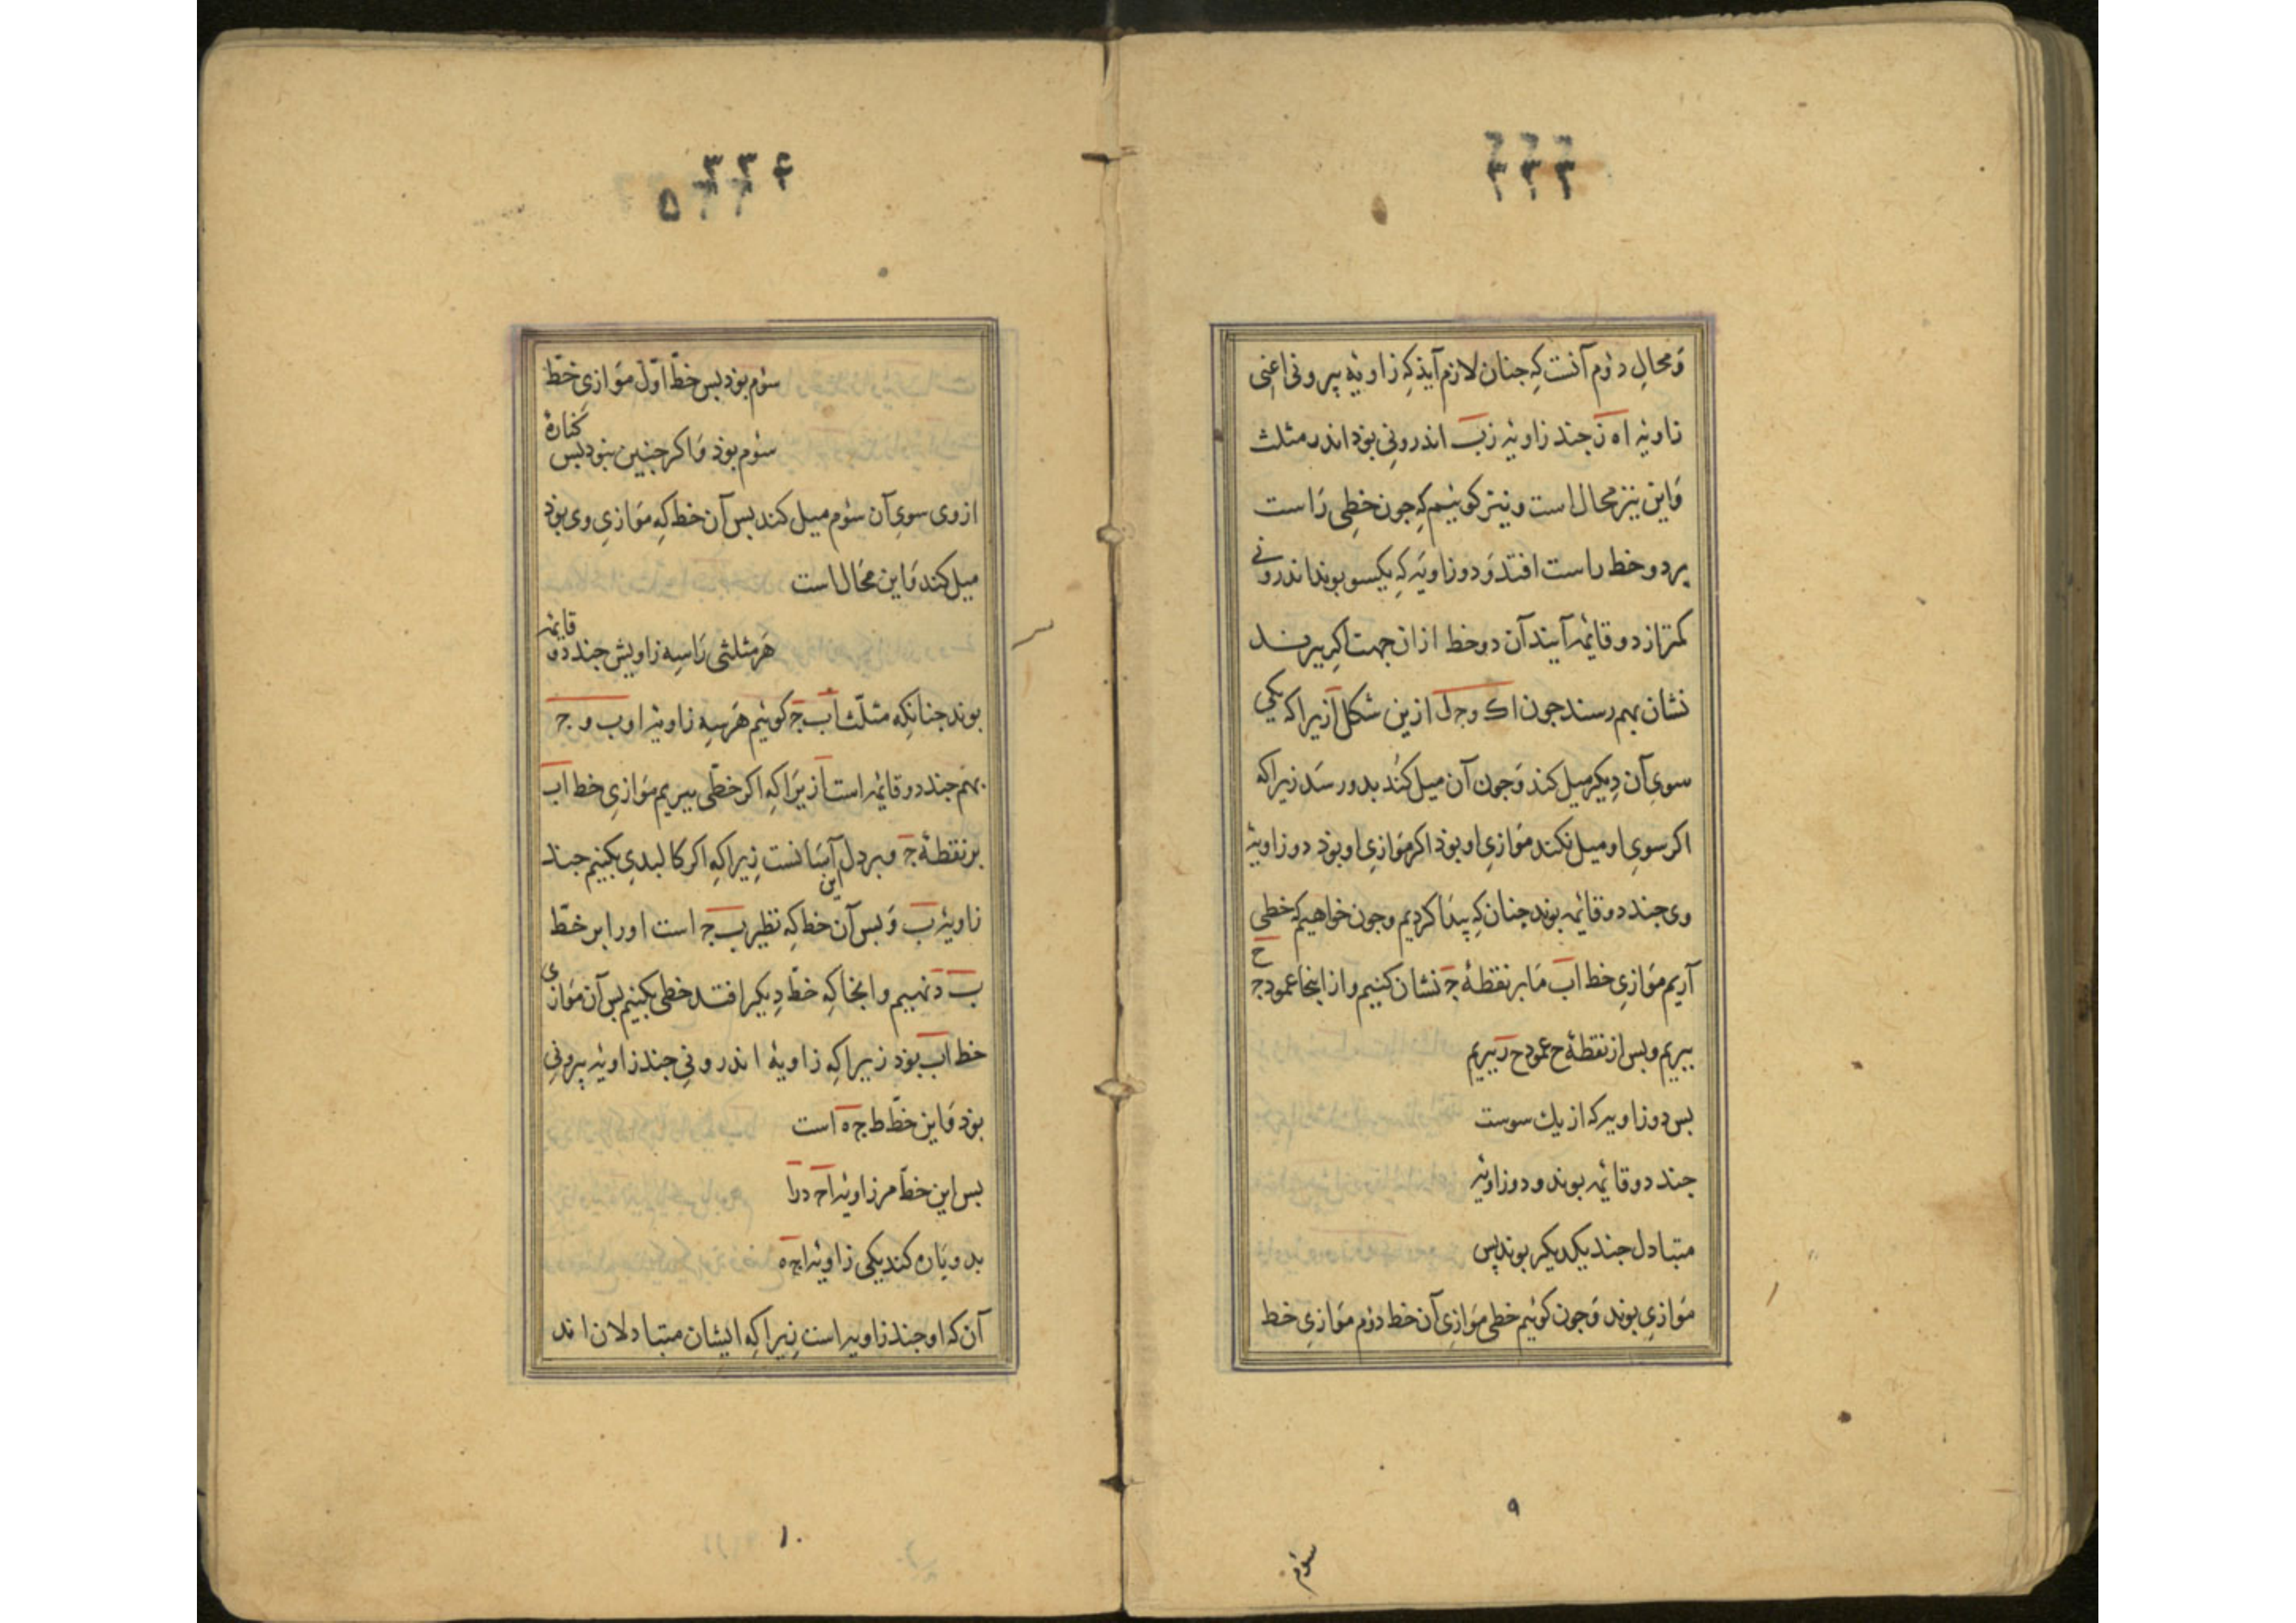 ۳۳۳
وَمحالِ دوُم آنست که جنان لازم آیذ که زاویهٔ بیرونی اعنی
زاویهٔ اه ز جند زاویهٔ زب اندرونی بوذ اندر مثلث
وَاین نیز محال است و نیز کوئیم که جون خطی رَاست
بر دو خط راست افتد وَ دو زاویَه که یکسو بوند اندرونی
کمتر از دو قائمه آیند آن دو خط از ان جهت اکر ببرند
نشان بهم رسند جون اک و جل ازین شکل ازیرا که یکی
سوی آن دِیکر میل کند وَجون آن میل کند بدو رسَد زیرا که
اکر سوی او میل نکند موَازیِ او بوذ اکر موَازیِ او بوذ دو زاویهٔ
وی جند دو قائمه بوند جنان که پیدَا کردیم و جون خواهیم که خطی
آریم موَازیِ خط اب مَا بر نقطهٔ ج نشان کنیم و از اینجا عمود ج ح
ببریم و بس از نقطهٔ ح عمود ح د ببریم
بس دو زاویه که از یك سوست
جند دو قائمه بوند و دو زاویَه
متبادل جند یکدیکر بوند پس
موَازی بوند وَجون کوئیم خطی موَازیِ آن خط دوُم موَازیِ خط
۹
سوُم
۳۳۴
۵
سوُم بوذ بس خطّ اوّل موَازیِ خطّ
سوُم بوذ وَاکر جنین نبوذ بس کنارهٔ
از وی سویِ آن سوُم میل کند بس آن خط که موَازیِ وی بوذ
میل کند وَاین محَال است
هَر مثلثی رَا سِه زاویش جند دو قائمه
بوند جنانکه مثلّث اب ج کوئیم هَر سِه زاویهٔ ا و ب و ج
بهَم جند دو قائمه است ازیرَا که اکر خطّی ببریم موَازیِ خط اب
بر نقطهٔ ج و بر دل آسَانست زیراکِه اکر کالبدی بکنیم جند
زاویهٔ ب وَ بس آن خط که نظیر ب ج است این او را بر خطّ
ب د نهیم و انجا که خطّ دِیکر افتد خطی بکنیم بس آن موَازی
خط اب بوذ زیراکه زاویهٔ اندرونی جند زاویهٔ بیرونی
بوذ وَاین خطّ ط ج ه است
بس این خطّ مر زاویهٔ ا ج د را
بدو پَاره کند یکی زاویهٔ ا ج ه
آن که او جند زاویه است زیراکه ایشان متبادلان اند
۱۰